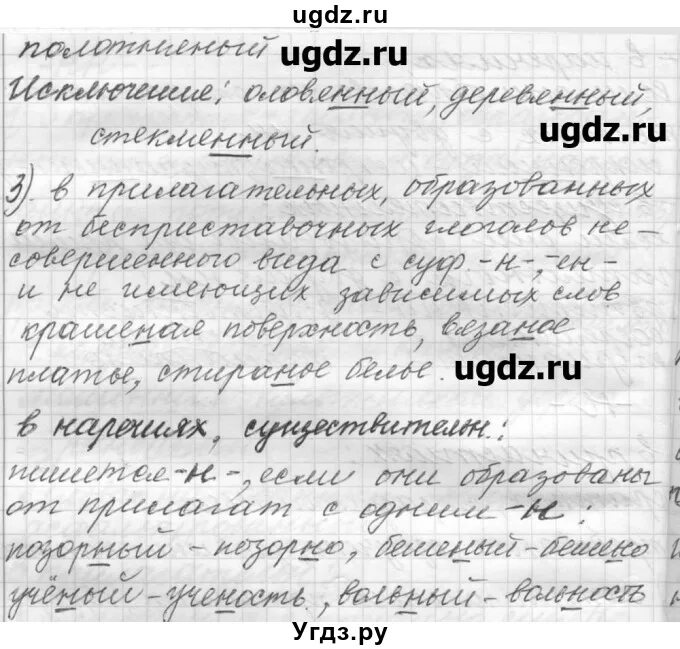 ugdz.ru
полотняный
ugdz.ru
Исключение: оловянный, деревянный,
ugdz.ru
стеклянный.
3) в прилагательных, образованных
от бесприставочных глаголов не-
совершенного вида с суф. -н-, -ен-
и не имеющих зависимых слов
крашеная поверхность, вязаное
платье, стираное белье.
ugdz.ru
в наречиях, существительн.:
пишется -н-, если они образованы
от прилагат с одним -н:
позорный - позорно, бешеный - бешено
учёный - ученость, вольный - вольность
Угдз.ру